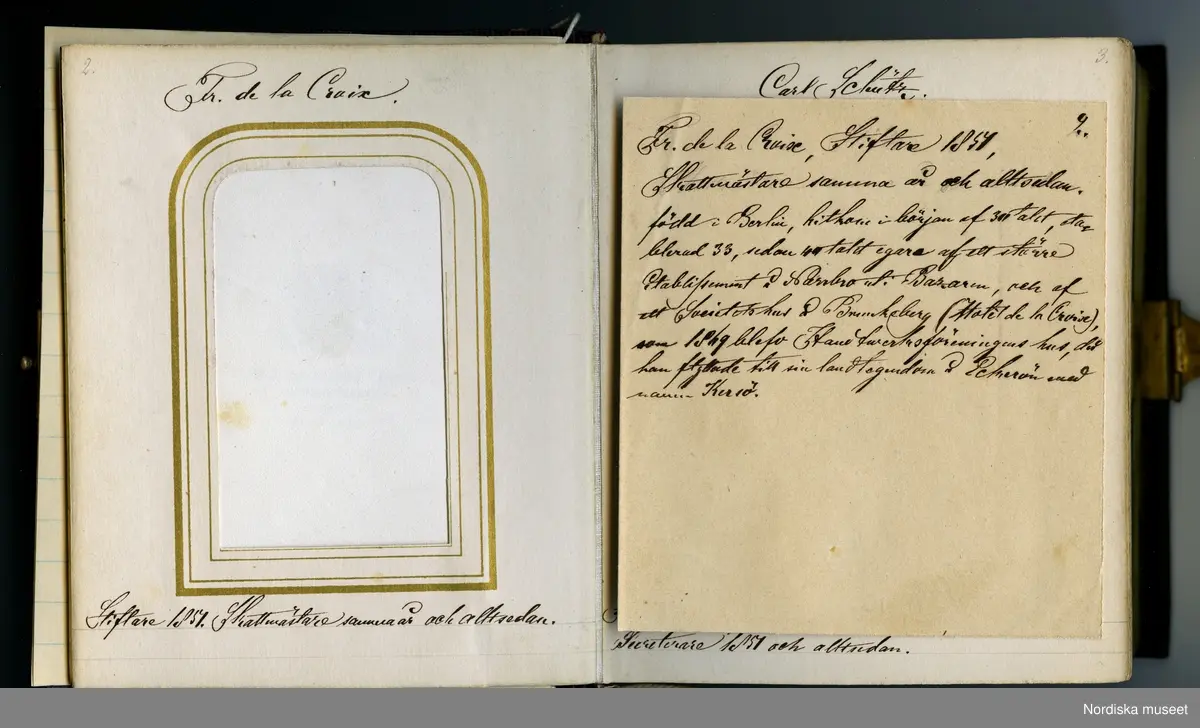 2.
Fr. de la Croix.
Stiftare 1851. Skattmästare samma år och alltsedan.
3.
Carl Schütz.
2.
Fr. de la Croix, Stiftare 1851,
Skattmästare samma år och alltsedan.
född i Berlin, hitkom i början af 30 talet, eta-
blerad 33, sedan 40 talet egare af ett större
Etablissement å Norrbro ut. Bazaren, och af
ett Societetshus å Brunkeberg (Hotel de la Croix),
som 1849 blefv Handtverksföreningens hus, då
han flyttade till sin landtegendom å Eckerön med
namn Kersö.
Secreterare 1851 och alltsedan.
Nordiska museet